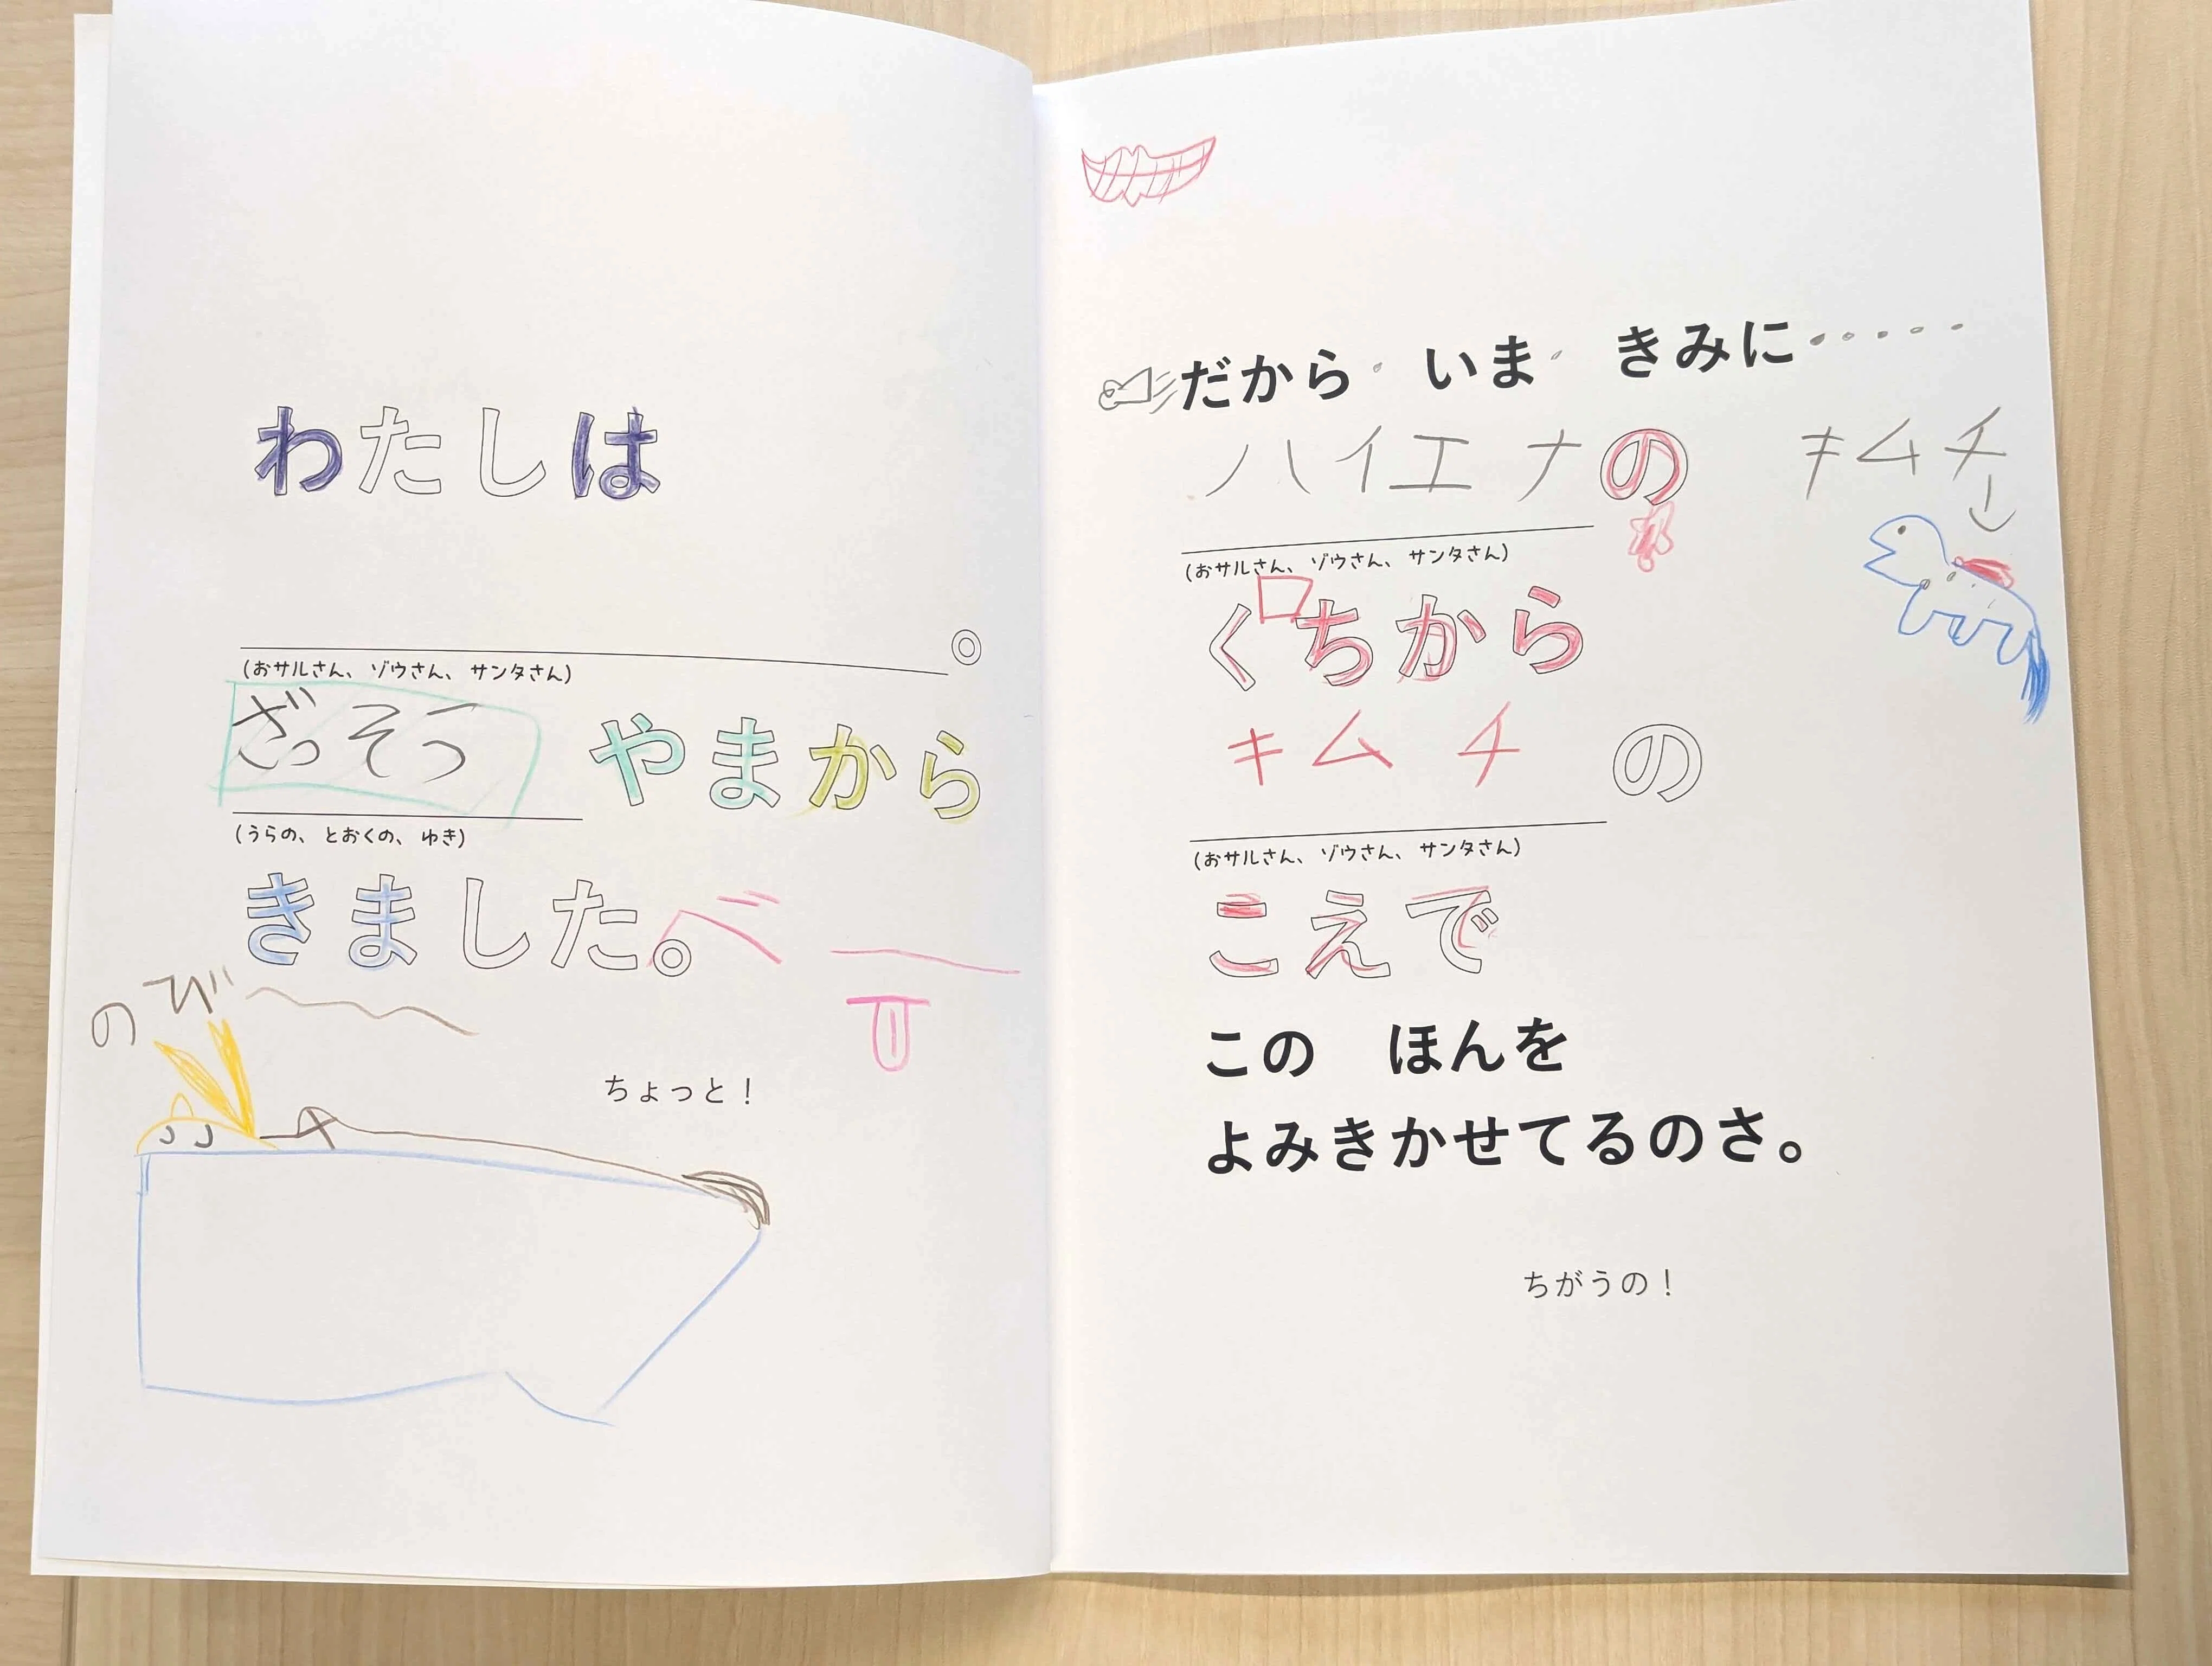 わたしは
。
(おサルさん、ゾウさん、サンタさん)
ざっそう やまから
(うらの、とおくの、ゆき)
きました。
のび
ちょっと！
だから いま きみに・・・・・
ハイエナの キムチ
(おサルさん、ゾウさん、サンタさん)
口
くちから
キムチの
(おサルさん、ゾウさん、サンタさん)
こえで
この ほんを
よみきかせてるのさ。
ちがうの！